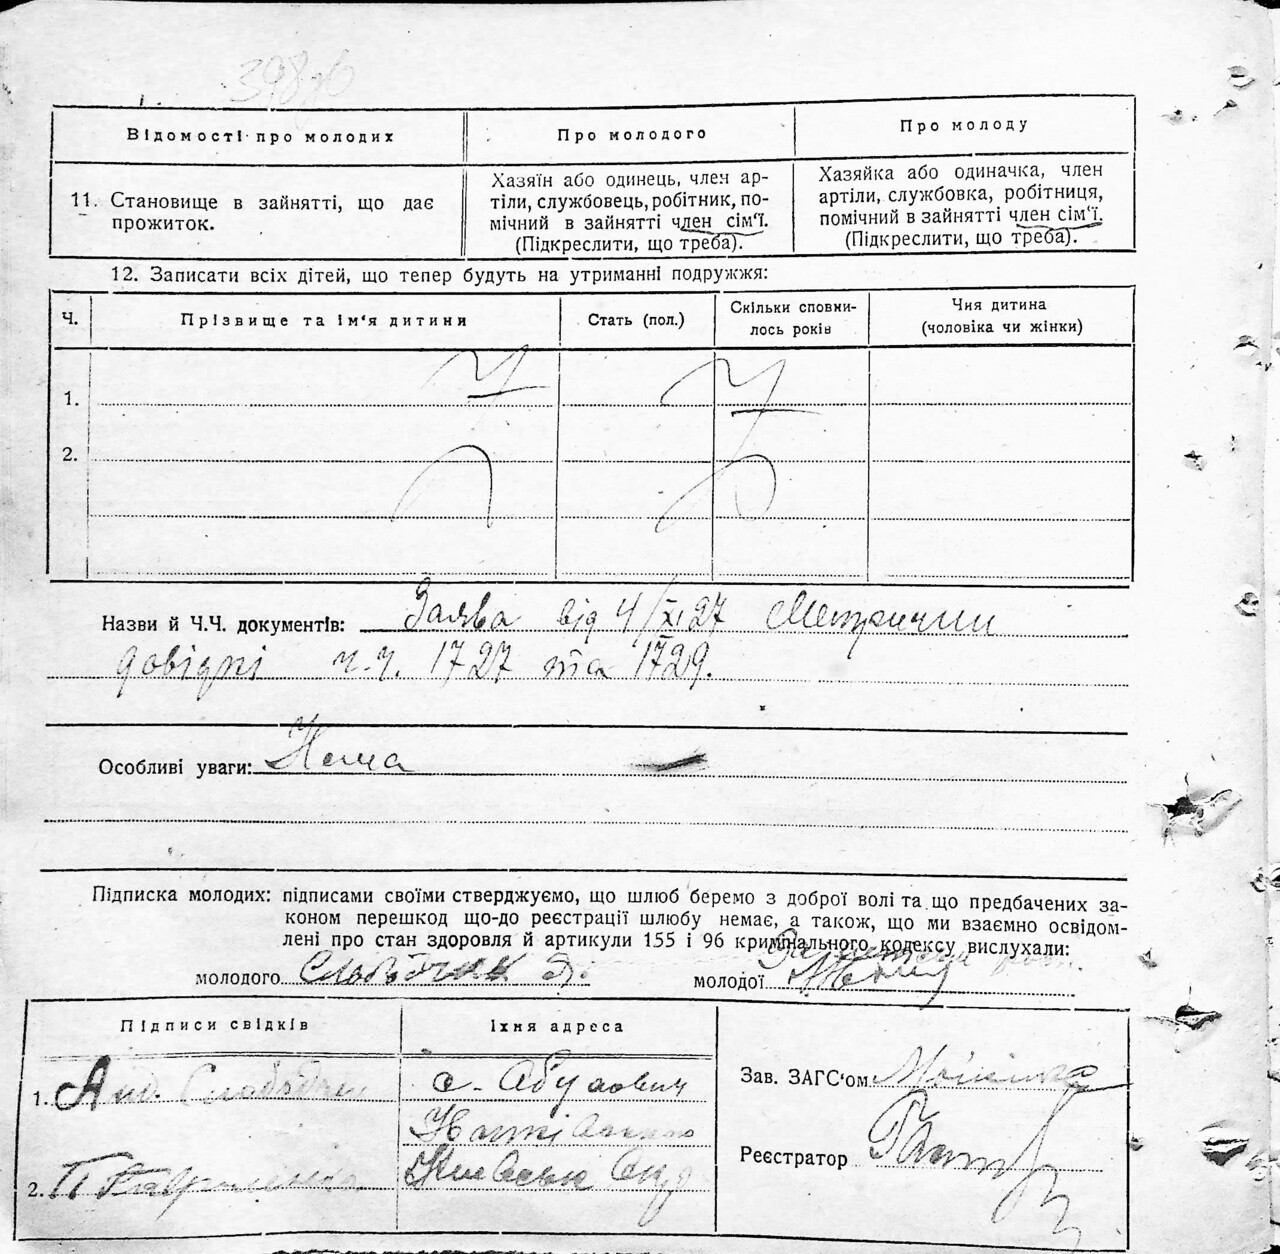 398зв
Відомості про молодих
Про молодого
Про молоду
11. Становище в зайнятті, що дає
прожиток.
Хазяїн або одинець, член ар-
тілі, службовець, робітник, по-
мічний в зайнятті член сім'ї.
(Підкреслити, що треба).
Хазяйка або одиначка, член
артілі, службовка, робітниця,
помічний в зайнятті член сім'ї.
(Підкреслити, що треба).
12. Записати всіх дітей, що тепер будуть на утриманні подружжя:
Ч.
Прізвище та ім'я дитини
Стать (пол.)
Скільки сповни-
лось років
Чия дитина
(чоловіка чи жінки)
1.
2.
Назви й Ч.Ч. документів: Заява від 4/XI 27 Метричні
довідкі ч.ч. 1727 та 1729.
Особливі уваги: Нема
Підписка молодих: підписами своїми стверджуємо, що шлюб беремо з доброї волі та що предбачених за-
коном перешкод що-до реєстрації шлюбу немає, а також, що ми взаємно освідом-
лені про стан здоров'я й артикули 155 і 96 кримінального кодексу вислухали:
молодого Слободчик
молодої
Підписи свідків
Їхня адреса
1. Анд.
с.
2. П Гавриленко
Зав. ЗАГС'ом
Реєстратор